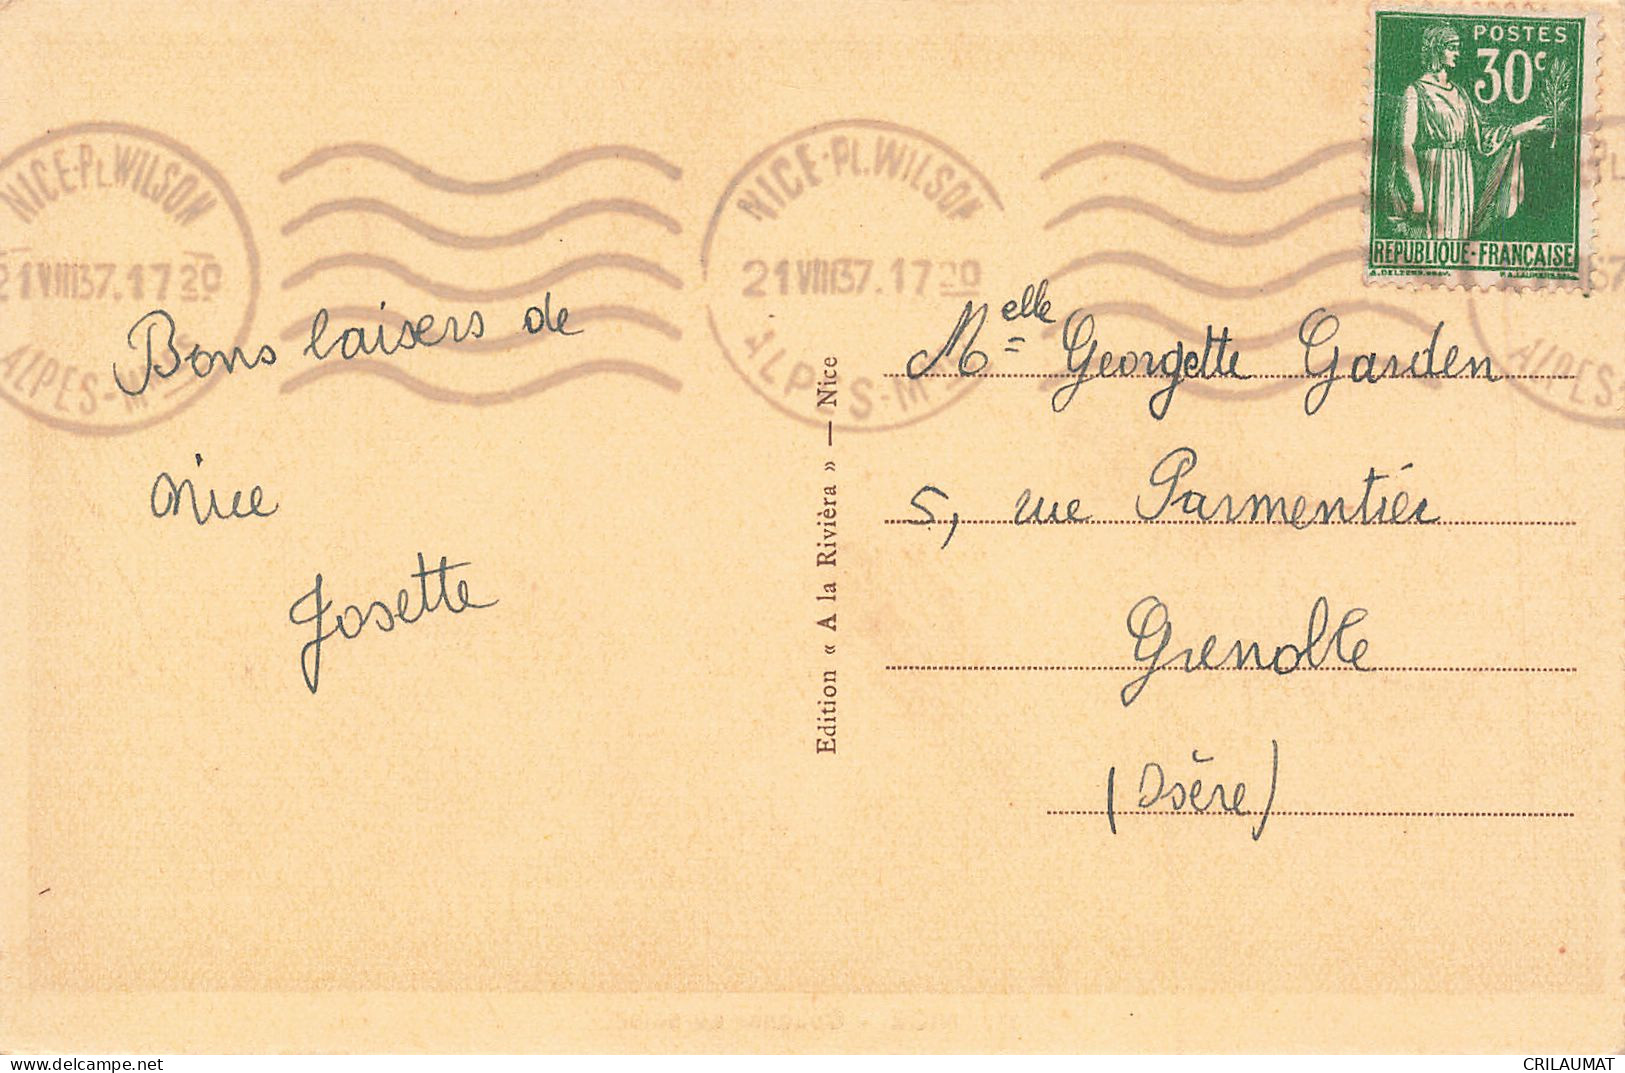 POSTES
30c
RÉPUBLIQUE-FRANÇAISE
NICE-PL.WILSON
21 VIII 37.17 20
ALPES-MMES
NICE-PL.WILSON
21 VIII 37.17 20
ALPES-M
Bons baisers de
Nice
Josette
Edition « A la Rivièra » — Nice
Melle Georgette Garden
5, rue Parmentier
Grenoble
(Isère)
www.delcampe.net
CRILAUMAT